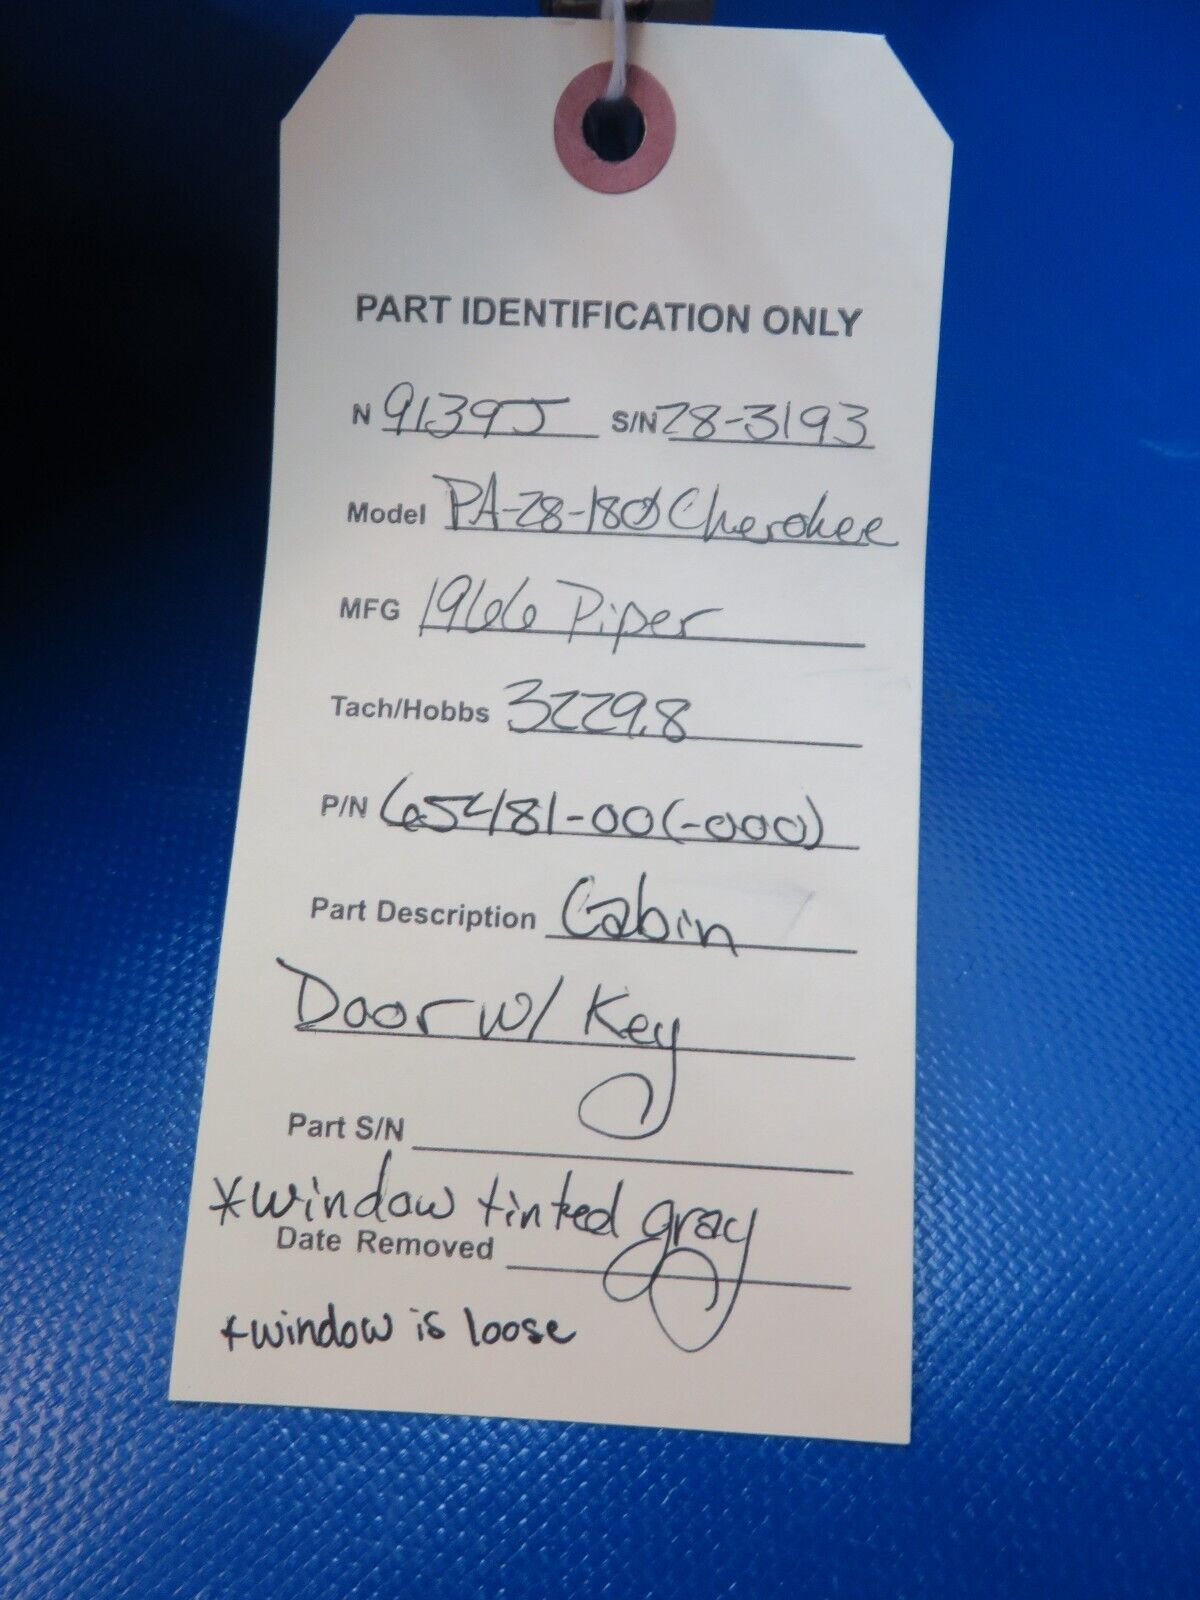 PART IDENTIFICATION ONLY
N 9139J S/N 28-3193
Model PA-28-180 Cherokee
MFG 1966 Piper
Tach/Hobbs 3229.8
P/N 65481-00(-000)
Part Description Cabin
Door w/ Key
Part S/N
*window tinted gray
Date Removed
*window is loose